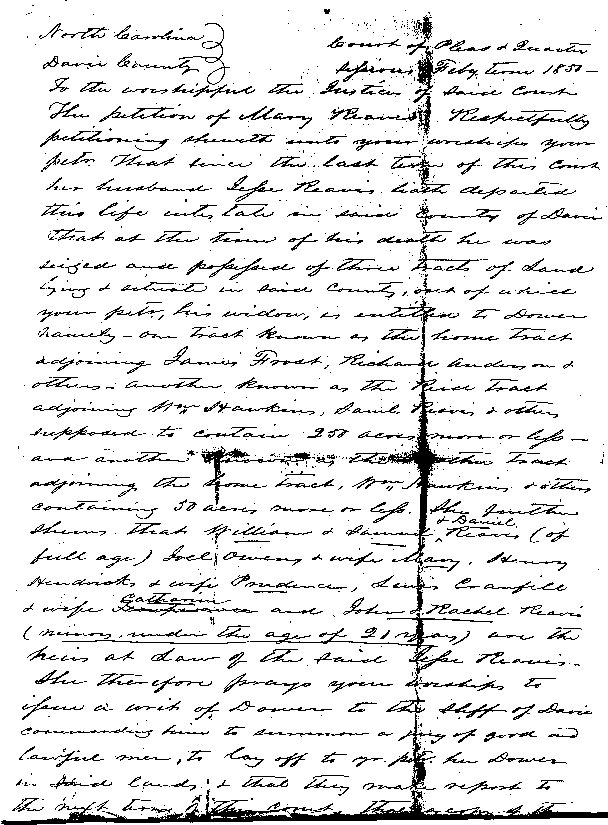 North Carolina
Court of Pleas & Quarter
Davie County
Sessions Feby term 1850 -
To the worshipful the Justices of Davie Court
The petition of Mary Reavis Respectfully
petitioning sheweth unto your worships your
petr. That since the last term of this Court
her husband Jesse Reavis hath departed
this life intestate in said County of Davie
That at the time of his death he was
seized and possessed of three tracts of Land
lying & situate in said County, out of which
your petr, his widow, is entitled to Dower
namely - one tract known as the home tract
adjoining James Frost, Richard Anderson &
others - another known as the tract
adjoining Wm Hawkins, Saml. Reavis & others
supposed to contain 250 acres more or less -
and another known as the tract
adjoining the home tract, Wm Hawkins & others
containing 50 acres more or less. She further
shews that William & Samuel & Daniel Reavis (of
full age) Joel Owens & wife Mary, Henry
Hendricks & wife Prudence, Lewis Cranfill
& wife Catharin and John & Rachel Reavis
(minors under the age of 21 years) are the
heirs at Law of the said Jesse Reavis -
She therefore prays your worships to
issue a writ of Dower to the Shff of Davie
commanding him to summon a jury of good and
lawful men, to lay off to yr petr. her Dower
in said lands, & that they make report to
the next term of this Court, that a copy of the